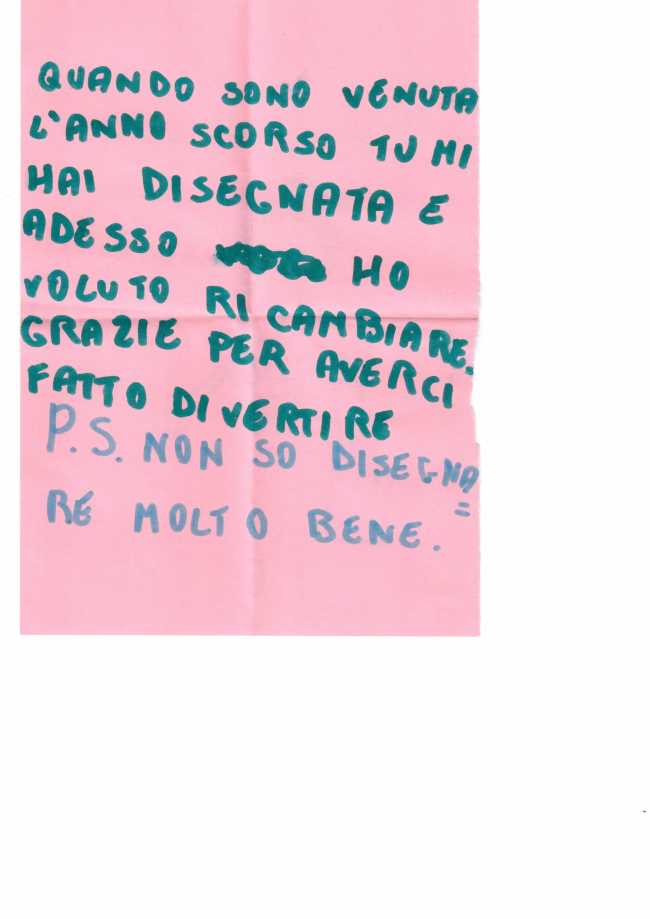 QUANDO SONO VENUTA
L'ANNO SCORSO TU MI
HAI DISEGNATA E
ADESSO HO
VOLUTO RICAMBIARE.
GRAZIE PER AVERCI
FATTO DIVERTIRE
P.S. NON SO DISEGNA=
RE MOLTO BENE.